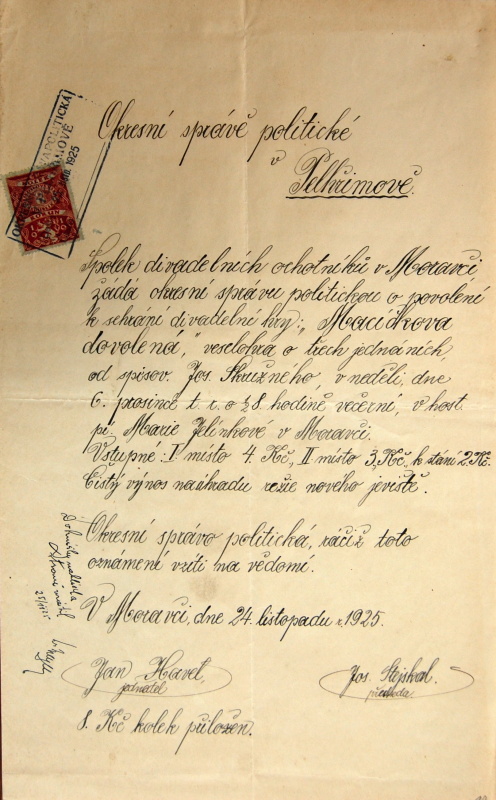 Okresní správě politické
v
Pelhřimově.
Spolek divadelních ochotníků v Moravči
žádá okresní správu politickou o povolení
k sehrání divadelní hry: „Macíčkova
dovolená," veselohra o třech jednáních
od spisov. Jos. Skružného, v neděli, dne
6. prosince t. r. o ½ 8. hodině večerní, v host.
pí. Marie Jelínkové v Moravči.
Vstupné: I místo 4. Kč, II místo 3, Kč, k stání 2. Kč.
Čistý výnos na úhradu režie nového jeviště.
Okresní správo politická, račiž toto
oznámení vzíti na vědomí.
V Moravči, dne 24. listopadu r. 1925.
Jan Havel,
jednatel
Jos. Stejskal.
předseda.
8. Kč kolek přiložen.
1925